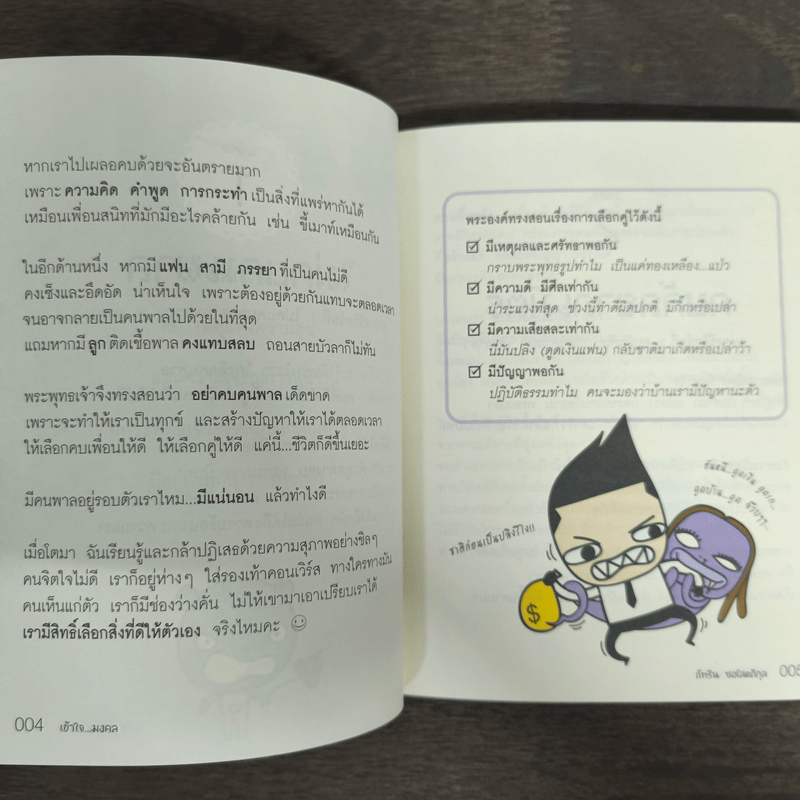 หากเราไปเผลอคบด้วยจะอันตรายมาก
เพราะ ความคิด คำพูด การกระทำ เป็นสิ่งที่แพร่หากันได้
เหมือนเพื่อนสนิทที่มักมีอะไรคล้ายกัน เช่น ขี้เมาท์เหมือนกัน
ในอีกด้านหนึ่ง หากมี แฟน สามี ภรรยา ที่เป็นคนไม่ดี
คงเซ็งและอึดอัด น่าเห็นใจ เพราะต้องอยู่ด้วยกันแทบจะตลอดเวลา
จนอาจกลายเป็นคนพาลไปด้วยในที่สุด
แถมหากมี ลูก ติดเชื้อพาล คงแทบสลบ ถอนสายบัวลาก็ไม่ทัน
พระพุทธเจ้าจึงทรงสอนว่า อย่าคบคนพาล เด็ดขาด
เพราะจะทำให้เราเป็นทุกข์ และสร้างปัญหาให้เราได้ตลอดเวลา
ให้เลือกคบเพื่อนให้ดี ให้เลือกคู่ให้ดี แค่นี้...ชีวิตก็ดีขึ้นเยอะ
มีคนพาลอยู่รอบตัวเราไหม...มีแน่นอน แล้วทำไงดี
เมื่อโตมา ฉันเรียนรู้และกล้าปฏิเสธด้วยความสุภาพอย่างชิลๆ
คนจิตใจไม่ดี เราก็อยู่ห่างๆ ใส่รองเท้าคอนเวิร์ส ทางใครทางมัน
คนเห็นแก่ตัว เราก็มีช่องว่างคั่น ไม่ให้เขามาเอาเปรียบเราได้
เรามีสิทธิ์เลือกสิ่งที่ดีให้ตัวเอง จริงไหมคะ ☺
004 เข้าใจ...มงคล
พระองค์ทรงสอนเรื่องการเลือกคู่ไว้ดังนี้
☑ มีเหตุผลและศรัทธาพอกัน
กราบพระพุทธรูปทำไม เป็นแค่ทองเหลือง...แบ้ว
☑ มีความดี มีศีลเท่ากัน
น่าระแวงที่สุด ช่วงนี้ทำดีผิดปกติ มีกิ๊กหรือเปล่า
☑ มีความเสียสละเท่ากัน
นี่มันปลิง (ดูดเงินแฟน) กลับชาติมาเกิดหรือเปล่าว้า
☑ มีปัญญาพอกัน
ปฏิบัติธรรมทำไม คนจะมองว่าบ้านเรามีปัญหานะตัว
ชาติก่อนเป็นปลิงรึไง!!
$
005